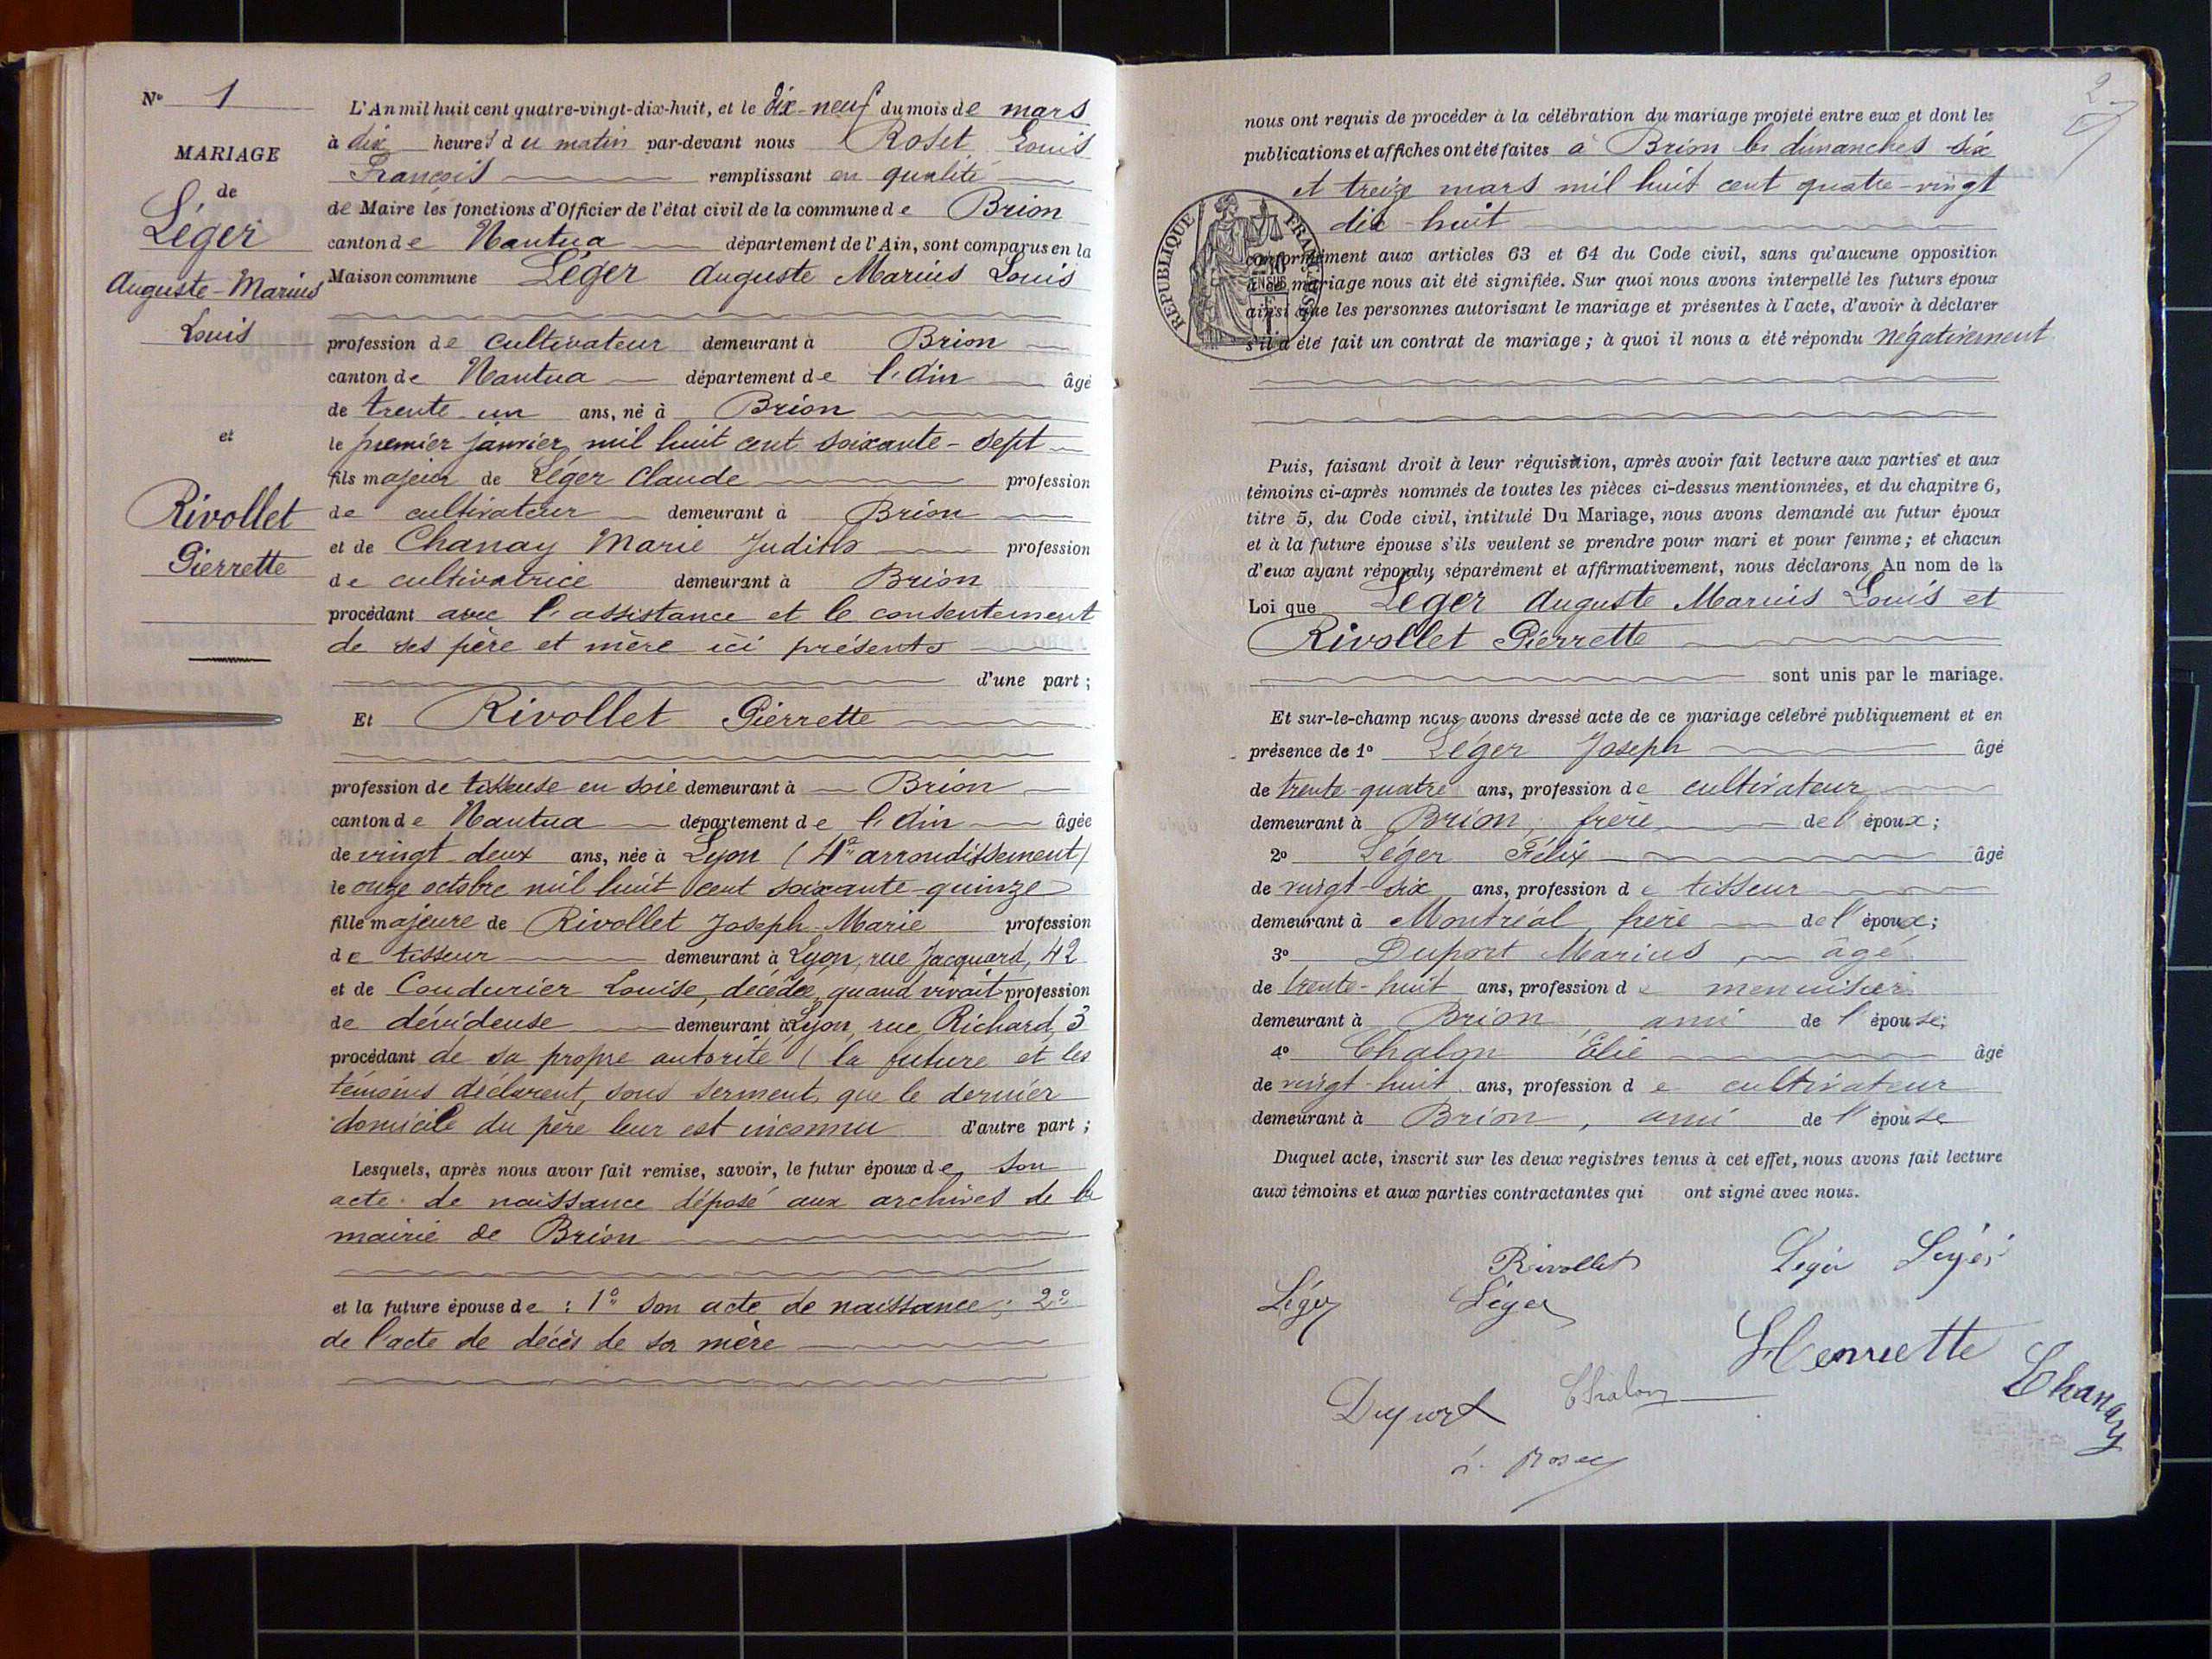 N° 1
MARIAGE
de
Léger
Auguste-Marius
Louis
et
Rivollet
Pierrette
L'An mil huit cent quatre-vingt-dix-huit, et le dix-neuf du mois de mars
à dix heures du matin par-devant nous Roset Louis
François remplissant en qualité
de Maire les fonctions d'Officier de l'état civil de la commune de Brion
canton de Nantua département de l'Ain, sont comparus en la
Maison commune Léger Auguste Marius Louis
profession de cultivateur demeurant à Brion
canton de Nantua département de l'Ain âgé
de trente-un ans, né à Brion
le premier janvier mil huit cent soixante-sept
fils majeur de Léger Claude profession
de cultivateur demeurant à Brion
et de Chanay Marie Judith profession
de cultivatrice demeurant à Brion
procédant avec l'assistance et le consentement
de ses père et mère ici présents
d'une part ;
Et Rivollet Pierrette
profession de tisseuse en soie demeurant à Brion
canton de Nantua département de l'Ain âgée
de vingt-deux ans, née à Lyon (4e arrondissement)
le onze octobre mil huit cent soixante-quinze
fille majeure de Rivollet Joseph-Marie profession
de tisseur demeurant à Lyon, rue Jacquard, 42
et de Coudurier Louise, décédée, quand vivait profession
de dévideuse demeurant à Lyon, rue Richard, 3
procédant de sa propre autorité (la future et les
témoins déclarent, sous serment, que le dernier
domicile du père leur est inconnu d'autre part ;
Lesquels, après nous avoir fait remise, savoir, le futur époux de son
acte de naissance déposé aux archives de la
mairie de Brion
et la future épouse de : 1° son acte de naissance ; 2°
de l'acte de décès de sa mère
2
nous ont requis de procéder à la célébration du mariage projeté entre eux et dont les
publications et affiches ont été faites à Brion les dimanches six
et treize mars mil huit cent quatre-vingt
dix-huit
RÉPUBLIQUE FRANÇAISE
conformément aux articles 63 et 64 du Code civil, sans qu'aucune opposition
à ce mariage nous ait été signifiée. Sur quoi nous avons interpellé les futurs époux
ainsi que les personnes autorisant le mariage et présentes à l'acte, d'avoir à déclarer
s'il a été fait un contrat de mariage ; à quoi il nous a été répondu négativement
Puis, faisant droit à leur réquisition, après avoir fait lecture aux parties et aux
témoins ci-après nommés de toutes les pièces ci-dessus mentionnées, et du chapitre 6,
titre 5, du Code civil, intitulé Du Mariage, nous avons demandé au futur époux
et à la future épouse s'ils veulent se prendre pour mari et pour femme ; et chacun
d'eux ayant répondu séparément et affirmativement, nous déclarons Au nom de la
Loi que Léger Auguste Marius Louis et
Rivollet Pierrette
sont unis par le mariage.
Et sur-le-champ nous avons dressé acte de ce mariage célébré publiquement et en
présence de 1° Léger Joseph âgé
de trente-quatre ans, profession de cultivateur
demeurant à Brion, frère de l'époux ;
2° Léger Félix âgé
de vingt-six ans, profession de tisseur
demeurant à Montréal, frère de l'époux ;
3° Duport Marius, âgé
de trente-huit ans, profession de menuisier
demeurant à Brion, ami de l'épouse ;
4° Chalon Élie âgé
de vingt-huit ans, profession de cultivateur
demeurant à Brion, ami de l'épouse
Duquel acte, inscrit sur les deux registres tenus à cet effet, nous avons fait lecture
aux témoins et aux parties contractantes qui ont signé avec nous.
Rivollet Léger Léger
Léger Léger
Henriette
Chanay
Duport Chalon